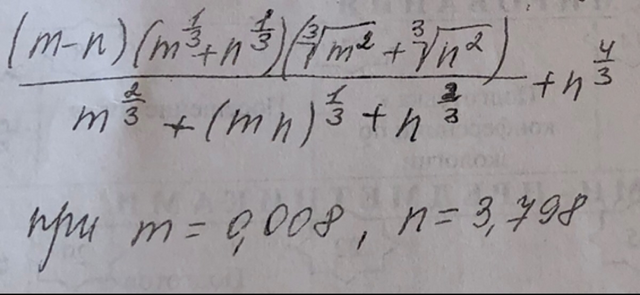 (m-n)(m^{1/3}+n^{1/3})(∛m² + ∛n²)
/ (m^{2/3} + (mn)^{1/3} + n^{2/3}) + n^{4/3}
при m = 0,008, n = 3,798